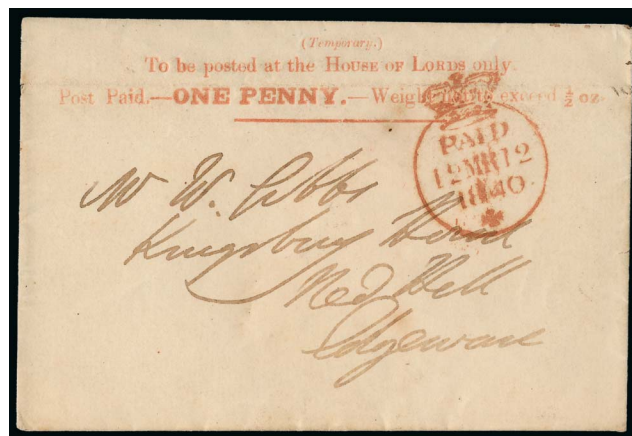 (Temporary.)
To be posted at the HOUSE OF LORDS only.
Post Paid.—ONE PENNY.—Weight not to exceed ½ oz.
PAID
12 MR 12
1840
Mr W. Gibbs
Kingsbury House
Red Hill
Edgeware